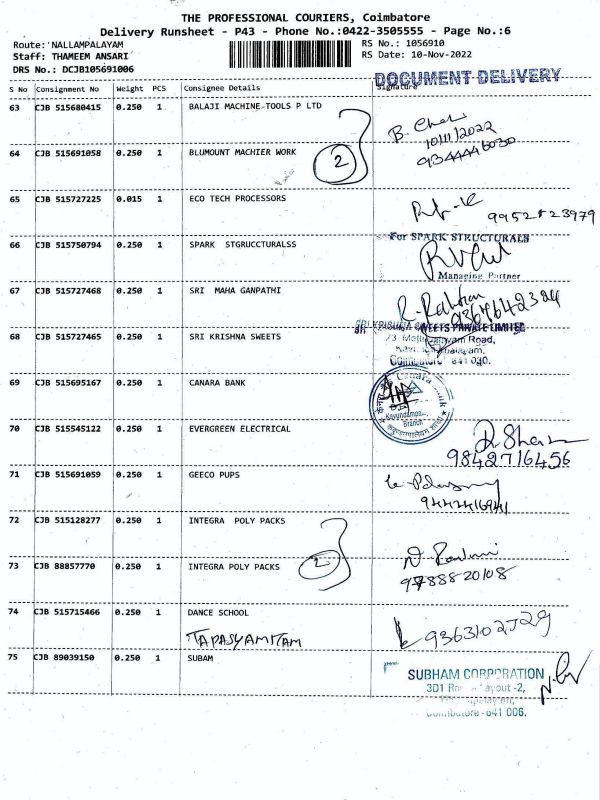 THE PROFESSIONAL COURIERS, Coimbatore
Delivery Runsheet - P43 - Phone No.:0422-3505555 - Page No.:6
Route: NALLAMPALAYAM
RS No.: 1056910
Staff: THAMEEM ANSARI
RS Date: 10-Nov-2022
DRS No.: DCJB105691006
DOCUMENT DELIVERY
S No Consignment No Weight PCS Consignee Details Signature
63 CJB 515680415 0.250 1 BALAJI MACHINE TOOLS P LTD
B. 
10/11/2022
9344446030
64 CJB 515691058 0.250 1 BLUMOUNT MACHIER WORK
2
65 CJB 515727225 0.015 1 ECO TECH PROCESSORS
66 CJB 515750794 0.250 1 SPARK STGRUCCTURALSS
For SPARK STRUCTURALS
Managing Partner
67 CJB 515727468 0.250 1 SRI MAHA GANPATHI
SRI KRISHNA SWEETS PRIVATE LIMITED
68 CJB 515727465 0.250 1 SRI KRISHNA SWEETS
Road,
Coimbatore 641 030.
69 CJB 515695167 0.250 1 CANARA BANK
Canara Bank
Branch
70 CJB 515545122 0.250 1 EVERGREEN ELECTRICAL
9842716456
71 CJB 515691059 0.250 1 GEECO PUPS
72 CJB 515128277 0.250 1 INTEGRA POLY PACKS
2
73 CJB 88857770 0.250 1 INTEGRA POLY PACKS
9788820108
74 CJB 515715466 0.250 1 DANCE SCHOOL
TAPASYAMITAM
75 CJB 89039150 0.250 1 SUBAM
SUBHAM CORPORATION
3D1 Layout -2,
Coimbatore - 641 006.